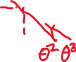 θ² θ³